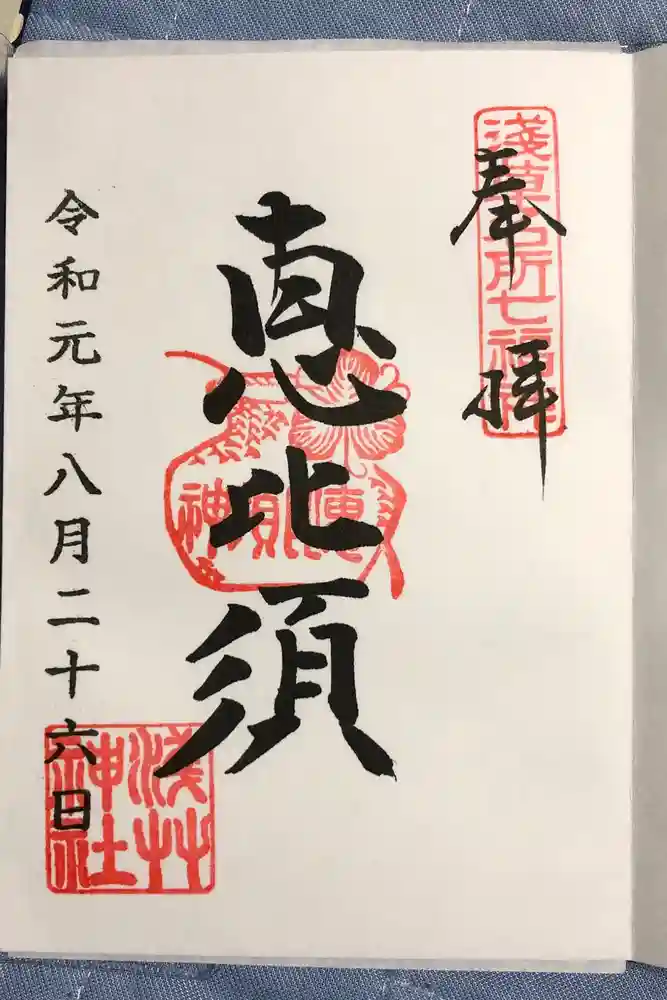 奉拝
淺草名所七福神
恵比須
恵比須神
令和元年八月二十六日
淺草神社